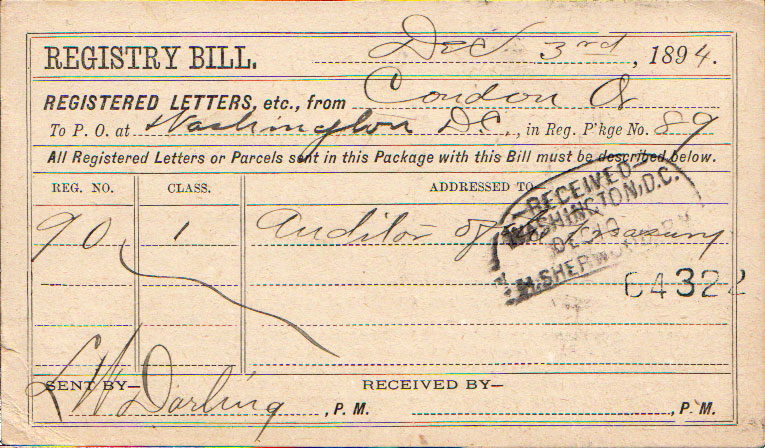 REGISTRY BILL. Dec 3rd, 1894.
REGISTERED LETTERS, etc., from Condon Or
To P. O. at Washington D.C., in Reg. P'kge No. 89
All Registered Letters or Parcels sent in this Package with this Bill must be described below.
REG. NO. CLASS. ADDRESSED TO
90 1 Auditor of Treasury
RECEIVED
WASHINGTON, D.C.
DEC 10
SHERWOOD
64322
SENT BY— L W Darling, P. M. RECEIVED BY— , P. M.